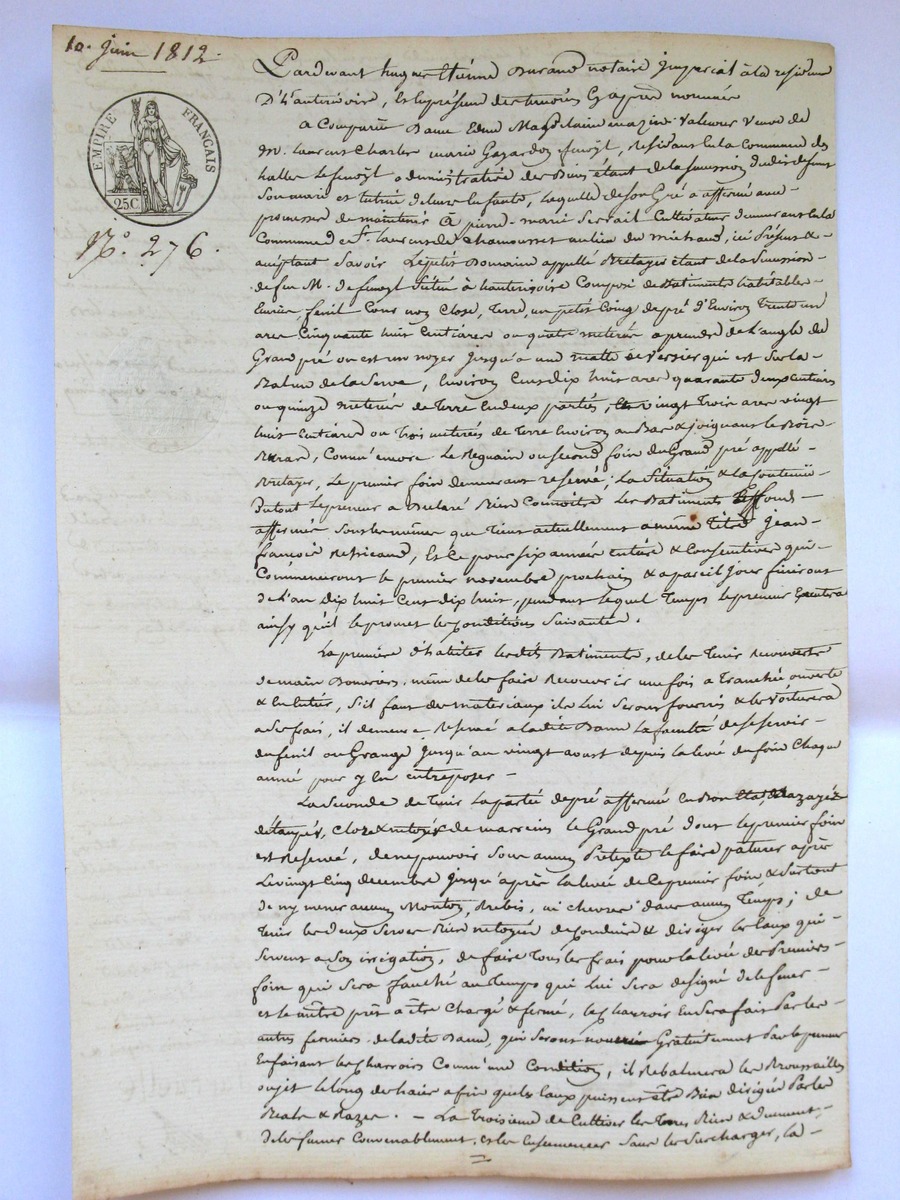 10. Juin 1812
EMPIRE FRANÇAIS
25C
N.° 276.
Pardevant hugues Etienne Durand notaire Jmperial à la residence
D'h'auterivoire, Et le présence des temoins Cy après nommés
a Comparüe Dame Edme Magdelaine mazire Valeures Veuve de
M. laurent Charles marie Gazardon fenoyl, Residant en la Commune des
halles le fenoyl administratrice des Biens étant de la sucession dudit defunt
Son mari et tutrice de leurs Enfants, laquelle de son Gré a affermé avec
promesse de maintenir à pierre-marie Serrail Cultivateur demeurant en la
Commune de St. laurent de Chamousset au lieu du michaud, ici Présent &
acceptant Savoir Le petit Domaine appellé Bretager étant de la Sucession
de feu M. de fenoyl Situé à hauterivoire Composé de Batiments habitables
Ecurie, fenil Cour non Close, Terre, un petit Coing de pré d'Environ Trente un
ares Cinquante huit Centiares ou quatre meterées a prendre de l'angle de
Grand pré ou est un noyer Jusqu'a une matte de Versier qui est sur la
Balme de la Serve, Environ Cent dix huit ares quarante deux Centiares
ou quinze meterées de Terre En deux parties, vingt Trois ares vingt
huit Centiares ou Trois meterées de Terre Environ au Bas & joignant le Bois
Rivar, Comm'encore Le Reguain ou second foin du Grand pré appellé
Bretager, Le premier foin demeurant reservé; La Situation & la Contenüe
Du tout Le preneur a Declaré Bien Connoitre Les Batiments & fonds
affermés Sont les mêmes que Tient actuellement a même Titre Jean
françois Retricand, Et Ce pour six années entières & Consécutives qui
Commenceront le premier novembre prochain & a pareil Jour finiront
de l'an Dix huit Cent Dix huit, pendant lequel Temps le preneur Exécutera
ainsy qu'il le promet les Conditions Suivantes.
La première d'habiter les dits Batiments, de les Tenir Recouverts
de main D'ouvriers, même de les faire Recouvrir une fois a Tranchée ouverte
& En Entier, S'il faut des materiaux ils lui Seront fournis & les Voiturera
a Ses frais, il demeure Reservé a la dite Dame La faculté de se servir
du fenil ou Grange Jusqu'au vingt aoust depuis la levée du foin Chaque
année pour y En entreposer
La Seconde de Tenir La partie de pré affermé en Bon Etat,
détaupés, Cloze & netoyés de même le Grand pré dont le premier foin
est Reservé, de ne pouvoir Sous aucun Prétexte le faire paturer après
Le vingt Cinq decembre Jusqu'après la levée de Ce premier foin, & Surtout
de n'y mener aucun Mouton, Brebis, ni chevres dans aucun Temps; de
Tenir les deux Serves Bien netoyées de Conduire & diriger les Eaux qui
Servent a Son irrigation, de faire Tous les frais pour la levée des Premiers
foin qui Sera fauché au Temps qui Lui Sera designé de le fener
et le mettre prêt a être Chargé & fermé, les Charrois En Sera fait Par les
autres fermiers de la dite Dame, qui Seront nourris Gratuitement Par le preneur
En faisant les Charrois Comm'une Condition, il Rebattera les Broussailles
au jet le long des haies afin que les Eaux puissent être Bien dirigées Par les
Beals & Razes. - La Troisieme de Cultiver les Terres Bien & dument,
de les fumer Convenablement, et les Ensemencer Sans les Surcharger, la